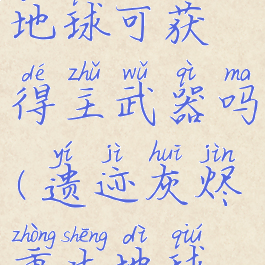 地球可获
dé zhǔ wǔ qì ma
得主武器吗
yí jì huī jìn
(遗迹灰烬
zhòng shēng dì qiú
重生地球